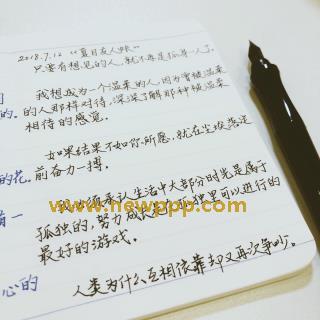 2018.7.12 《夏目友人帐》
只要有想见的人，就不再是孤身一人了。
我想成为一个温柔的人，因为曾被温柔
的人那样对待，深深了解那种被温柔
相待的感觉。
如果结果不如你所愿，就在尘埃落定
前奋力一搏。
承认生活中大部分时光是属于
孤独的，努力成长是在孤独里可以进行的
最好的游戏。
人类为什么互相依靠却又再次争吵。
的.
的花,
一
心的
www.newppp.com